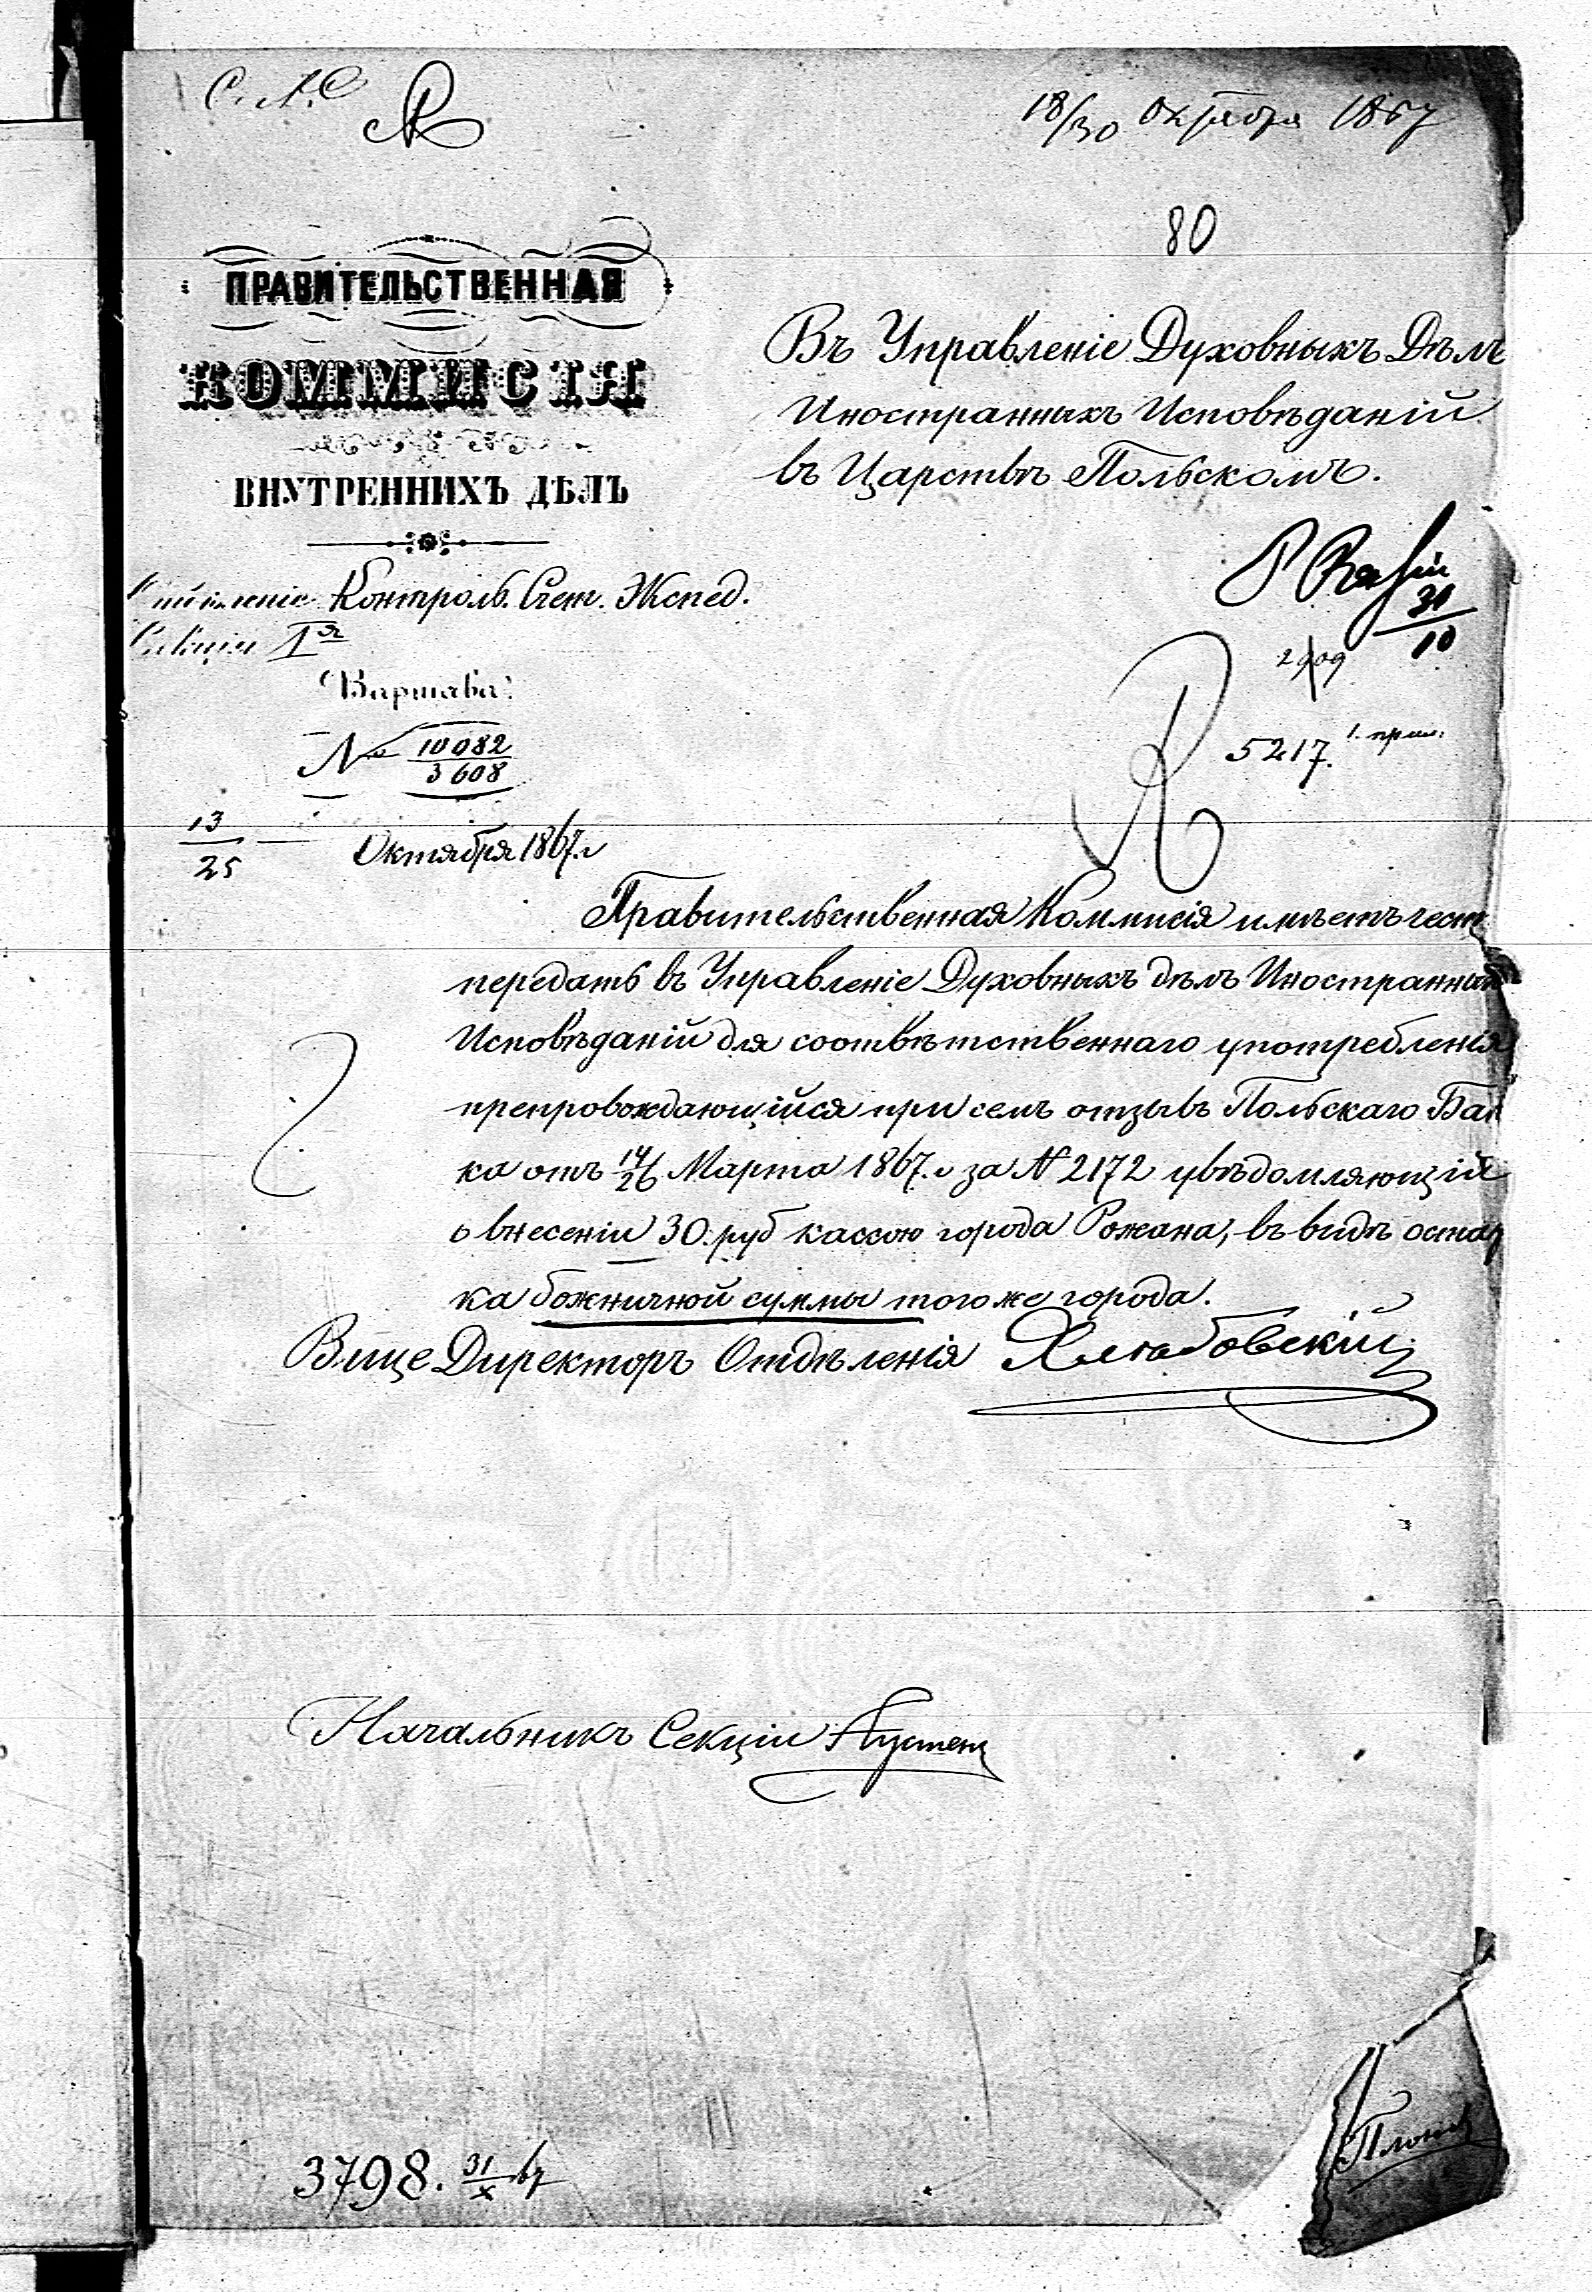 18/30 Октября 1867
80
ПРАВИТЕЛЬСТВЕННАЯ
КОММИСІЯ
ВНУТРЕННИХЪ ДѢЛЪ
Контроль. Счет. Экспед.
Секція 1я
Варшава
№ 10082/3608
13/25 Октября 1867.г
Въ Управленіе Духовныхъ Дѣлъ
Иностранныхъ Исповѣданій
въ Царствѣ Польскомъ.
31/10
2909
5217. 1. прил.
Правительственная Коммисія имѣетъ чест
передать въ Управленіе Духовныхъ дѣлъ Иностранных
Исповѣданій для соотвѣтственнаго употребленія
препровождающійся при семъ отзывъ Польскаго Бан
ка отъ 14/26 Марта 1867.г за № 2172 увѣдомляющій
о внесеніи 30. руб кассою города Рожана, въ видѣ остат
ка божничной суммы тогоже города.
Вице Директоръ Отдѣленія
Начальникъ Секціи
3798. 31/X 67